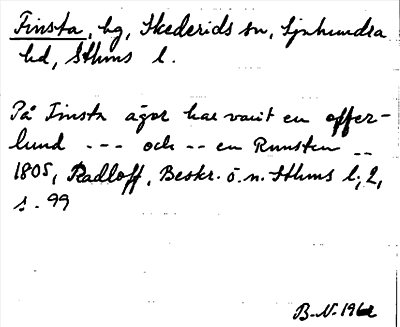 Finsta, hg, Skederids sn, Sjuhundra
hd, Sthms l.
På Finsta ägor har varit en offer-
lund --- och -- en Runsten --
1805, Radloff, Beskr. ö. n. Sthms l; 2,
s. 99
B-N- 196